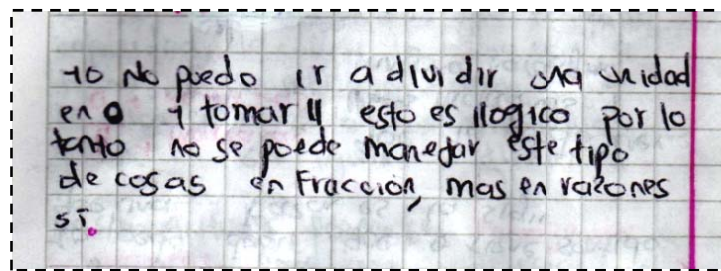 yo No puedo ir a dividir una unidad
en 0 y tomar 4 esto es ilogico por lo
tanto no se puede manejar este tipo
de cosas en Fracción, mas en razones
sí.